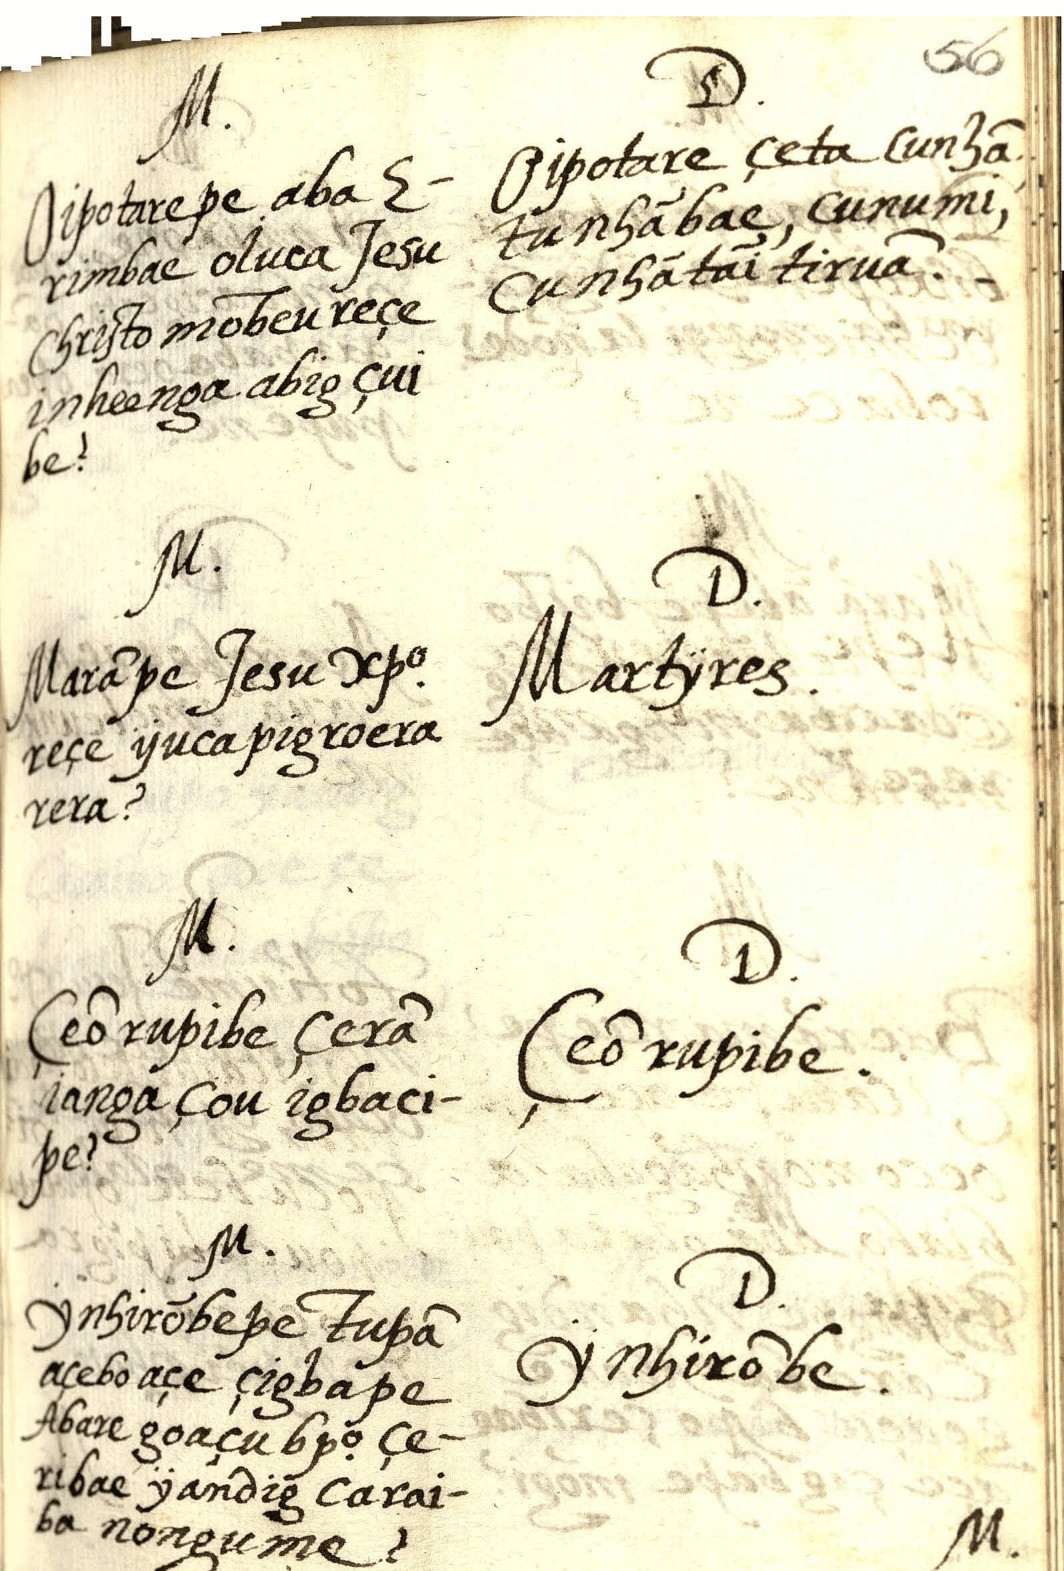 56
M.
Oipotarepe aba E-
rimbae oluca Jesu
Christo mõbeu reçe
inheenga abig çui
be?
D.
Oipotare çeta cunhã
tunhãbae, cunumi,
cunhãtaĩ tiruã.
M.
Marãpe Jesu Xpº.
reçe ÿucapigroera
rera?
D.
Martÿres.
M.
Çeõ rupibe çerã
ianga çou igbaci-
pe?
D.
Çeõ rupibe.
M.
Ÿnhirõbepe Tupã
açebo açe çigbape
Abare goaçu bpº çe-
ribae ÿandig carai-
ba nongume?
D.
Ÿnhirõbe.
M.